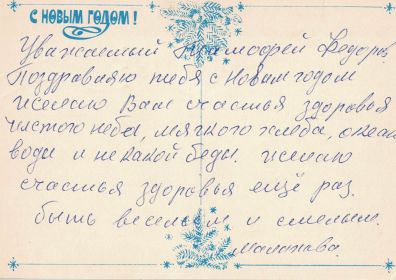 С НОВЫМ ГОДОМ!
Уважаемый Федоров
Поздравляю тебя с Новым годом
желаю Вам счастья здоровья
чистого неба, мягкого хлеба, океан
воды и не какой беды. желаю
счастья здоровья ещё раз.
быть веселым и смелым.